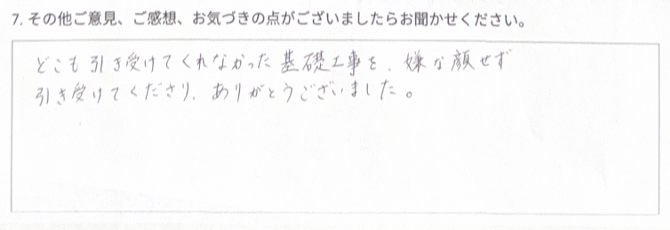 7. その他ご意見、ご感想、お気づきの点がございましたらお聞かせください。
どこも引き受けてくれなかった基礎工事を、嫌な顔せず
引き受けてくださり、ありがとうございました。